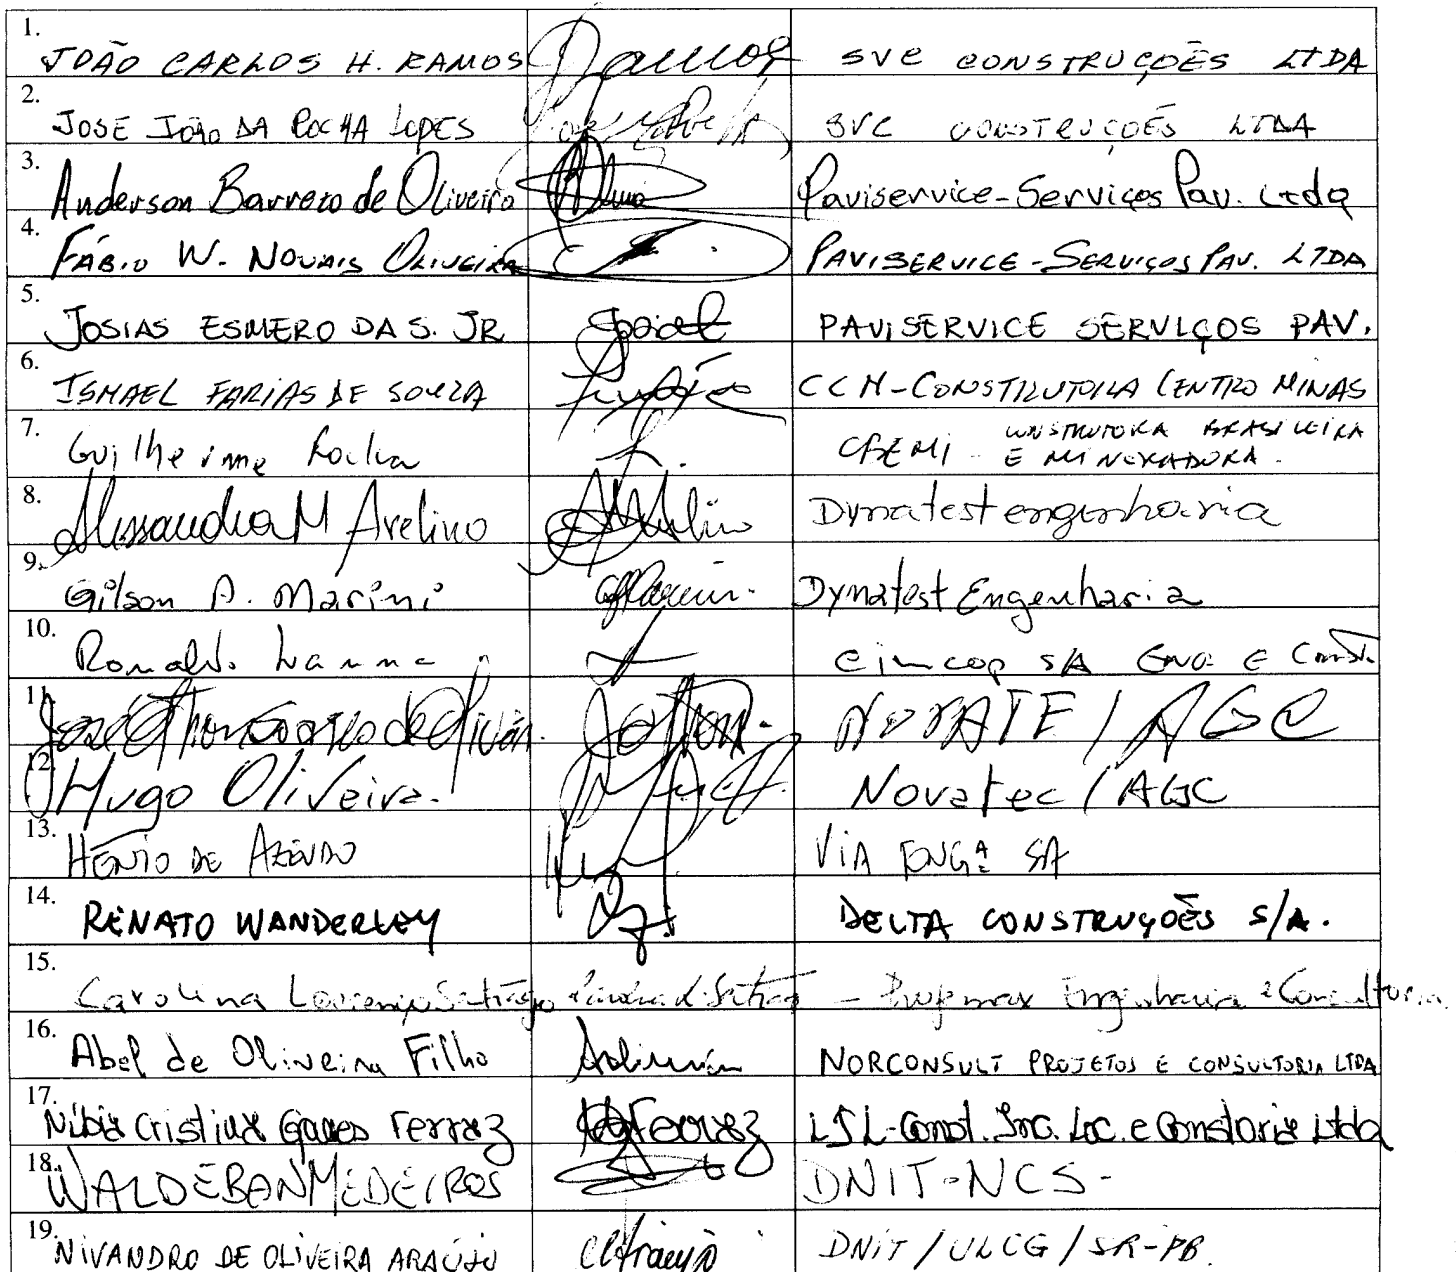 1. JOÃO CARLOS H. RAMOS Ramos SVC CONSTRUÇÕES LTDA
2. JOSE JOÃO DA ROCHA LOPES SVC CONSTRUÇÕES LTDA
3. Anderson Barreto de Oliveira Paviservice-Serviços Pav. Ltda
4. FÁBIO W. NOVAIS OLIVEIRA PAVISERVICE-SERVIÇOS PAV. LTDA
5. JOSIAS ESMERO DA S. JR PAVISERVICE SERVIÇOS PAV.
6. ISMAEL FARIAS DE SOUZA CCM-CONSTRUTORA CENTRO MINAS
7. Guilherme Rocha CBEMI - CONSTRUTORA BRASILEIRA
E MINERADORA.
8. Alessandra M Avelino Dynatest engenharia
9. Gilson A. Marini Dynatest Engenharia
10. Ronaldo Lanna Cimcop SA ENG. E Const.
11. José de / AGC
12. Hugo Oliveira. Novatec / AGC
13. HÊNIO DE AZEVEDO VIA ENGª SA
14. RENATO WANDERLEY DELTA CONSTRUÇÕES S/A.
15. Carolina Lourenço Satiago - Engenharia e Consultoria
16. Abel de Oliveira Filho NORCONSULT PROJETOS E CONSULTORIA LTDA
17. Níbia Cristina Ferraz Ferraz LSL-Const. Loc. e Ltda
18. WALDEBAN MEDEIROS DNIT-NCS-
19. NIVANDRO DE OLIVEIRA ARAÚJO Araujo DNIT/ULCG/SR-PB.